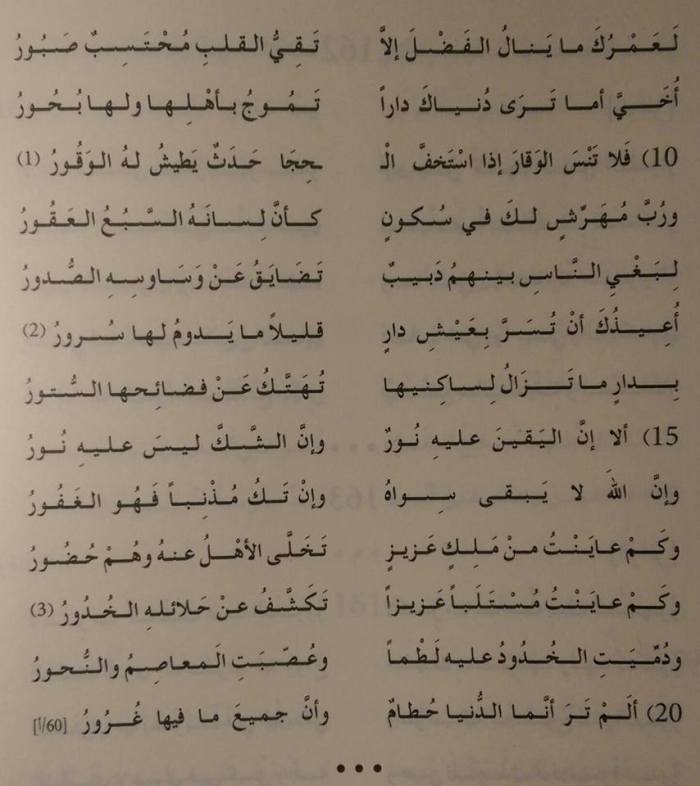 لَعَمْرُكَ ما يَنالُ الفَضْلَ إلاَّ تَقِيُّ القلبِ مُحْتَسِبٌ صَبُورُ
أُخَيَّ أما تَرَى دُنياكَ داراً تَمُوجُ بأهْلِها ولها بُحُورُ
10) فَلا تَنْسَ الوَقارَ إذا اسْتَخفَّ الْـ ـحِجَا حَدَثٌ يَطيشُ لهُ الوَقُورُ (1)
ورُبَّ مُهَرِّشٍ لكَ في سُكونٍ كأنَّ لِسانَهُ السَّبُعُ العَقُورُ
لِبَغْيِ النَّاسِ بينهمُ دَبيبٌ تَضَايَقُ عَنْ وَسَاوسِهِ الصُّدورُ
أُعِيذُكَ أنْ تُسَرَّ بِعَيْشِ دارٍ قليلاً ما يَدومُ لها سُرورُ (2)
بِدارٍ ما تَزَالُ لِساكِنيها تُهَتَّكُ عَنْ فضائحها السُّتورُ
15) ألا إنَّ اليَقينَ عليهِ نُورٌ وإنَّ الشَّكَّ ليسَ عليهِ نُورُ
وإنَّ اللهَ لا يَبقى سِواهُ وإنْ تَكُ مُذْنِباً فَهُو الغَفُورُ
وكَمْ عايَنْتُ منْ مَلِكٍ عَزيزٍ تَخَلَّى الأهْلُ عنهُ وهُمْ حُضُورُ
وكَمْ عاينْتُ مُسْتَلَباً عَزيزاً تَكَشَّفُ عنْ حَلائلهِ الخُدُورُ (3)
ودُمِّيَتِ الخُدُودُ عليه لَطْماً وعُصِّبَتِ المعاصِمُ والنُّحورُ
20) ألَمْ تَرَ أنَّما الدُّنيا حُطامٌ وأنَّ جميعَ ما فيها غُرُورُ [60/أ]